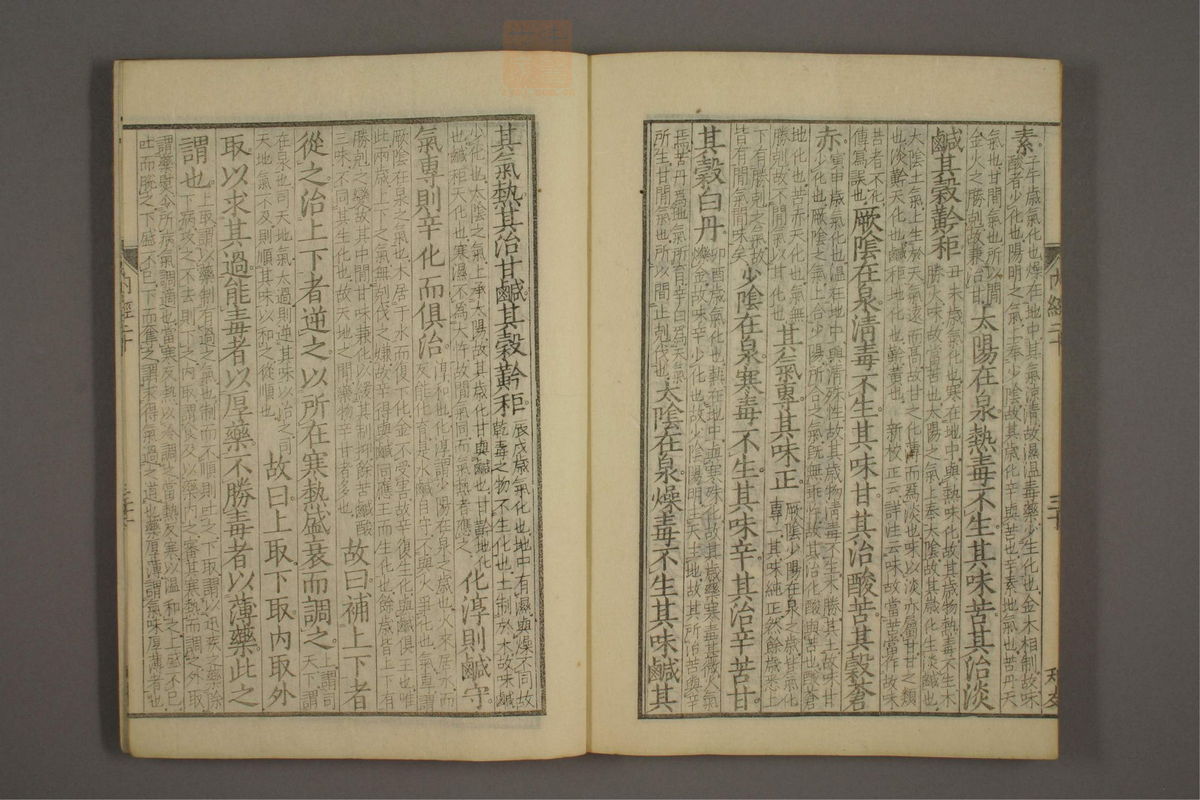 素。
子午歲氣化也燥在地中其氣涼清故濕溫毒藥少生化也金木相制故味
酸者少化也陽明之氣上奉少陰故其歲化辛與苦也辛素地氣也苦丹天
氣也甘間氣也所以間
金火之勝剋故兼治甘
太陽在泉熱毒不生其味苦其治淡
鹹其穀黅秬
丑未歲氣化也寒在地中與熱味化故其歲物熱毒不生木
勝火味故當苦也太陽之氣上奉太陰故其歲化生淡鹹也
太陰土氣上生於天氣遠而高故甘之化薄而為淡也味以淡亦屬甘甘之類
也淡黅天化也鹹秬地化也黅黃也 新校正云詳注云味故當苦當作故味
苦者不化
傳寫誤也
厥陰在泉清毒不生其味甘其治酸苦其穀蒼
赤。
寅申歲氣化也溫在地中與清殊性故其歲物清毒不生木勝其土故味甘
少化也厥陰之氣上合少陽所合之氣既無乖忤故其治化酸與苦也酸蒼
地化也苦赤天化也氣無
勝剋故不間氣以甘化也
其氣專其味正
厥陰少陽在泉之歲皆氣化
專一其味純正然餘歲悉上
下有勝剋之氣故
皆有間氣間味矣
少陰在泉寒毒不生其味辛其治辛苦甘
其穀白丹
卯酉歲氣化也熱在地中與寒殊化故其歲藥寒毒甚微火氣
爍金故味辛少化也故少陰陽明主天主地故其所治苦與辛
焉苦丹為地氣所育辛白為天氣
所生甘間氣也所以間止剋伐也
太陰在泉燥毒不生其味鹹其
內經二十
三十
其氣熱其治甘鹹其穀黅秬
辰戌歲氣化也地中有濕與燥不同故
乾毒之物不生化也土制於水故味鹹
少化也太陰之氣上承太陽故其歲化甘與鹹也甘黅地
也鹹秬天化也寒濕不為大忤故間氣同而氣熱者應之
化淳則鹹守
氣專則辛化而俱治
淳和也化淳謂少陽在泉之歲也火來居水而
反能化育是水鹹自守不與火爭化也氣專謂
厥陰在泉之氣也木居于水而復下化金不受害故辛復生化與鹹俱王也唯
此兩歲上下之氣無剋伐之嫌故辛得與鹹同應王而生化也餘歲皆上下有
勝剋之變故其中間甘味兼化以緩其制抑餘苦鹹酸
三味不同其生化也故天地之間藥物辛甘者多也
故曰補上下者
從之治上下者逆之以所在寒熱盛衰而調之
上謂司
天下謂
在泉也司天地氣太過則逆其味以治之司
天地氣不及則順其味以和之從順也
故曰上取下取內取外
取以求其過能毒者以厚藥不勝毒者以薄藥此之
謂也
上取謂以藥制有過之氣也制而不順則吐之下取謂以迅疾之藥除
下病攻之不去則下之內取謂食及以藥內之審其寒熱而調之外取
謂藥熨令所病氣調適也當寒反熱以冷調之當熱反寒以溫和之上盛不已
吐而脫之下盛不已下而奪之謂求得氣過之道也藥厚薄謂氣味厚薄者也
內經二十